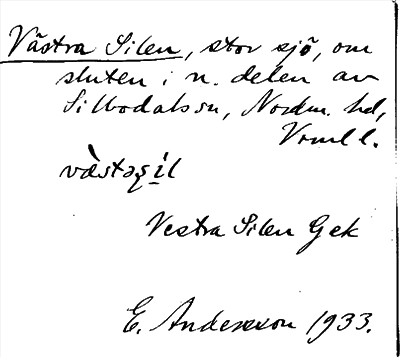 Västra Silen, stor sjö, om
sluten i n. delen av
Silbodalssn, Nordm. hd,
Vrml l.
Vestra Silen Gek
E. Andersson 1933.